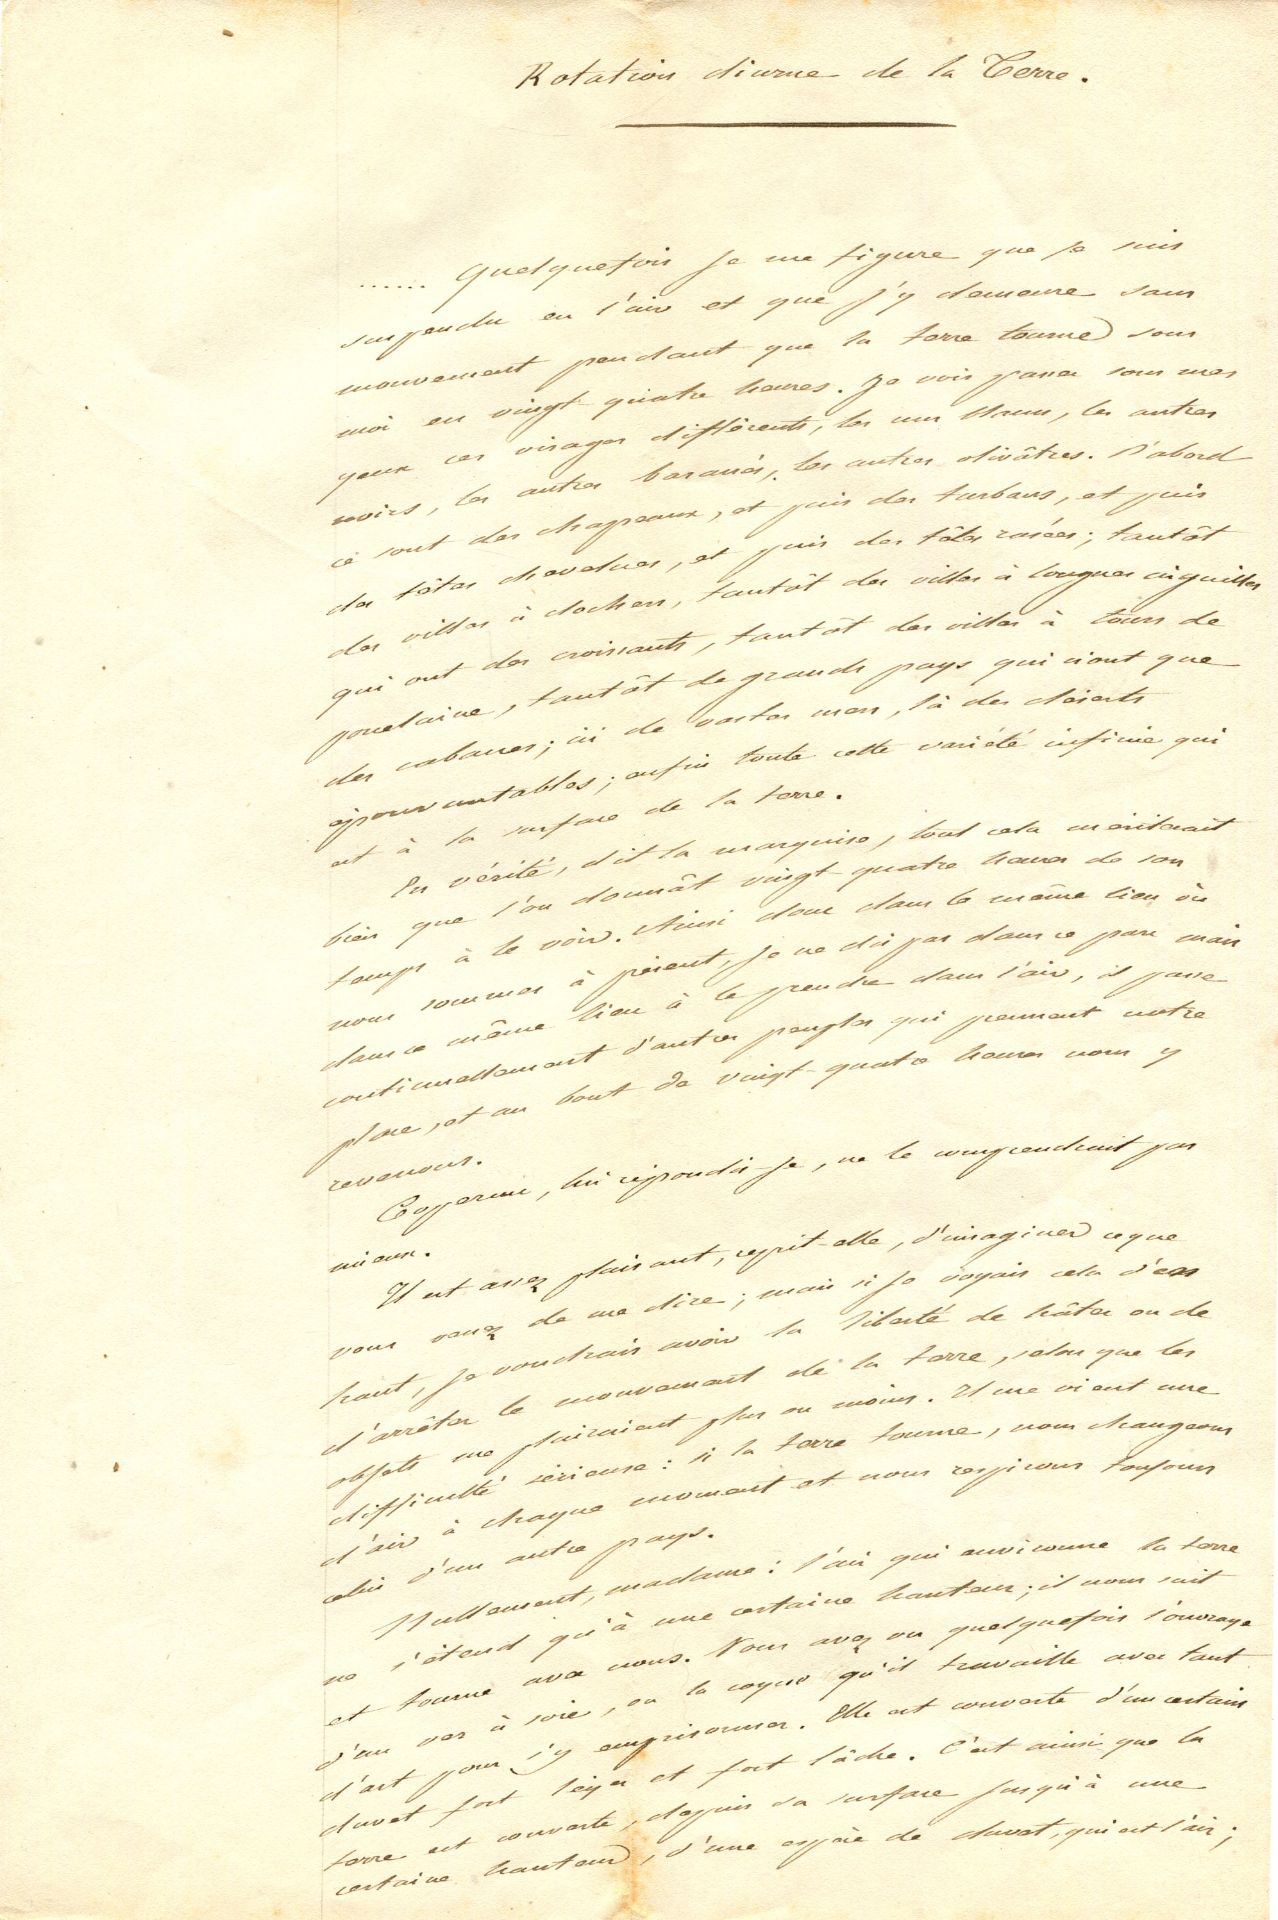 Rotation diurne de la Terre.
...... Quelquefois je me figure que je suis
suspendu en l'air et que j'y demeure sans
mouvement pendant que la terre tourne sous
moi en vingt-quatre heures. Je vois passer sous mes
yeux ces visages différents, les uns blancs, les autres
noirs, les autres basanés, les autres olivâtres. D'abord
ce sont des chapeaux, et puis des turbans, et puis
des têtes chevelues, et puis des têtes rasées; tantôt
des villes à clochers, tantôt des villes à longues aiguilles
qui ont des croissants, tantôt des villes à tours de
porcelaine, tantôt de grands pays qui n'ont que
des cabanes; ici de vastes mers, là des déserts
épouvantables; enfin toute cette variété infinie qui
est à la surface de la terre.
En vérité, dit la marquise, tout cela mériterait
bien que l'on donnât vingt-quatre heures de son
temps à le voir. Ainsi donc dans le même lieu où
nous sommes à présent, je ne dis pas dans ce parc mais
dans ce même lieu à le prendre dans l'air, il passe
continuellement d'autres peuples qui prennent notre
place, et au bout de vingt-quatre heures nous y
revenons.
Copernic, lui répondis-je, ne le comprendrait pas
mieux.
Il est assez plaisant, reprit-elle, d'imaginer ce que
vous venez de me dire; mais si je voyais cela d'en
haut, je voudrais avoir la liberté de hâter ou de
d'arrêter le mouvement de la terre, selon que les
objets me plairaient plus ou moins. Il me vient une
difficulté sérieuse: si la terre tourne, nous changeons
d'air à chaque moment et nous respirons toujours
celui d'un autre pays.
Nullement, madame: l'air qui environne la terre
ne s'étend qu'à une certaine hauteur; il nous suit
et tourne avec nous. Vous avez vu quelquefois l'ouvrage
d'un ver à soie, ou la coque qu'il travaille avec tant
d'art pour s'y emprisonner. Elle est couverte d'un certain
duvet fort léger et fort lâche. C'est ainsi que la
terre est couverte, depuis sa surface jusqu'à une
certaine hauteur, d'une espèce de duvet, qui est l'air;